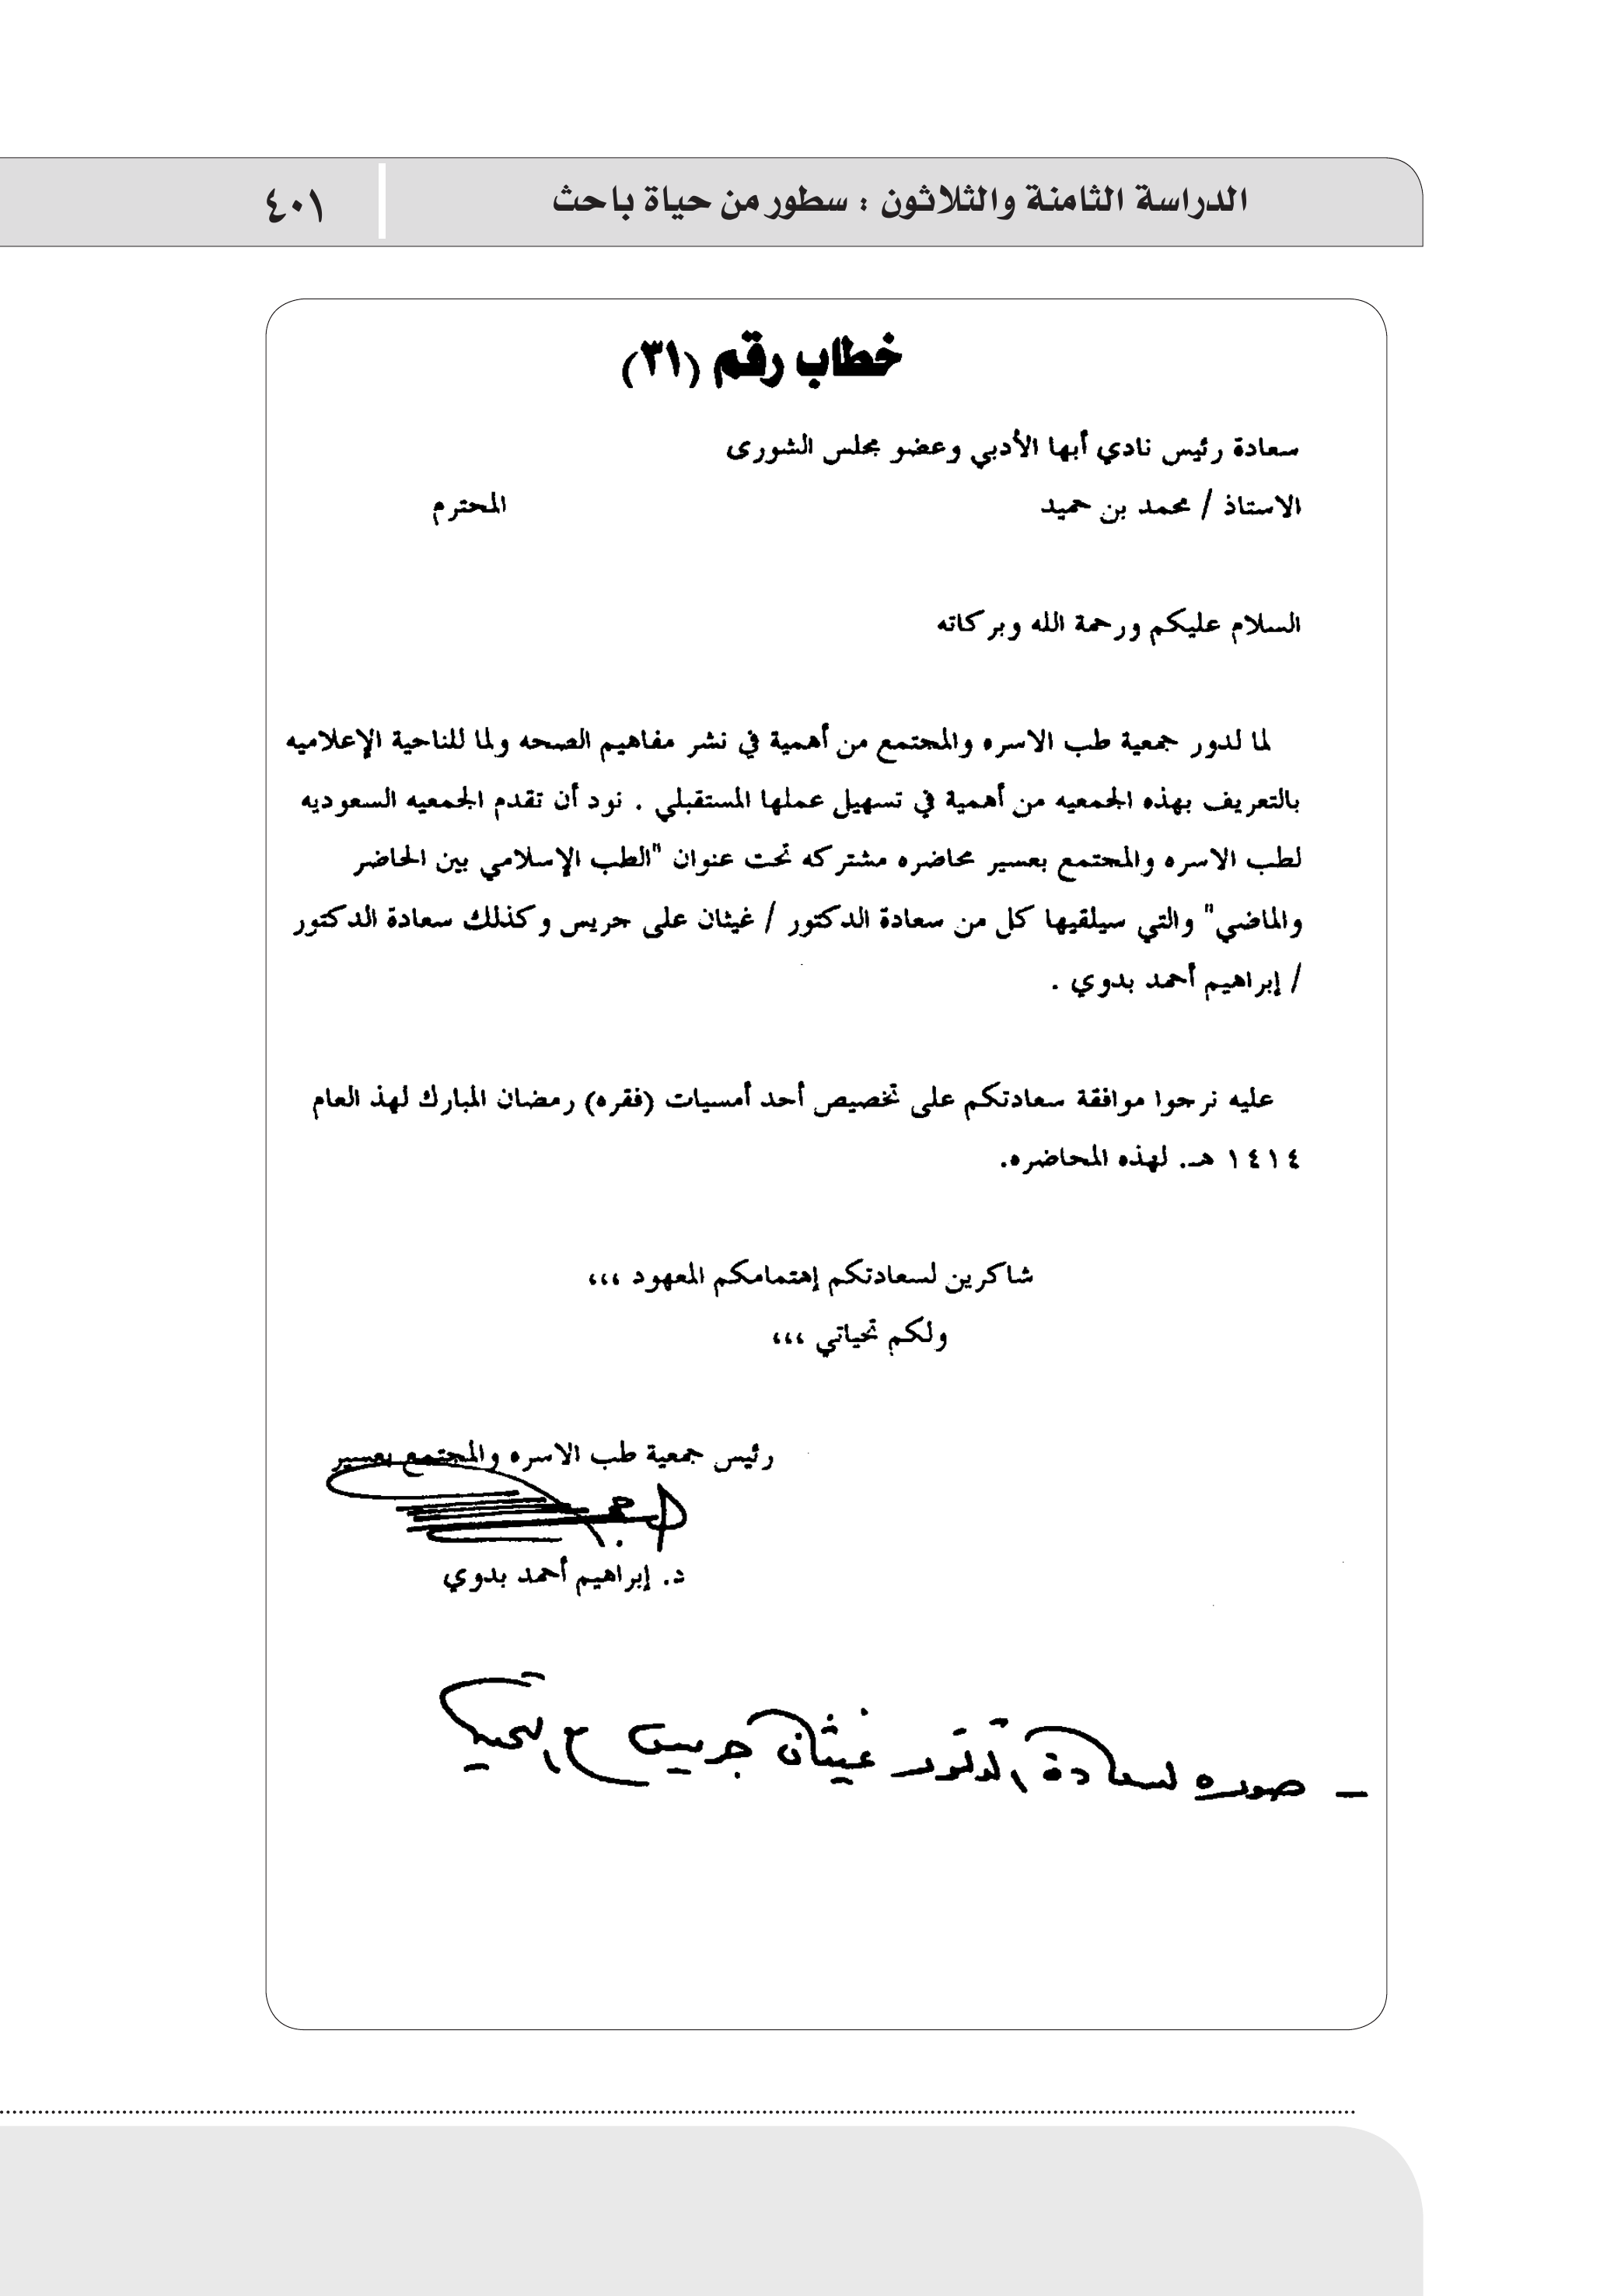 الدراسة الثامنة والثلاثون : سطور من حياة باحث
٤٠١
خطاب رقم (٣١)
سعادة رئيس نادي أبها الأدبي وعضو مجلس الشورى
الاستاذ / محمد بن حميد المحترم
السلام عليكم ورحمة الله وبركاته
لما لدور جمعية طب الاسره والمجتمع من أهمية في نشر مفاهيم الصحه ولما للناحية الإعلاميه
بالتعريف بهذه الجمعيه من أهمية في تسهيل عملها المستقبلي . نود أن تقدم الجمعيه السعوديه
لطب الاسره والمجتمع بعسير محاضره مشتركه تحت عنوان "الطب الإسلامي بين الحاضر
والماضي" والتي سيلقيها كل من سعادة الدكتور / غيثان على جريس وكذلك سعادة الدكتور
/ إبراهيم أحمد بدوي .
عليه نرجوا موافقة سعادتكم على تخصيص أحد أمسيات (فقره) رمضان المبارك لهذ العام
١٤١٤ هـ. لهذه المحاضره.
شاكرين لسعادتكم إهتمامكم المعهود ،،،
ولكم تحياتي ،،،
رئيس جمعية طب الاسره والمجتمع بعسير
د. إبراهيم أحمد بدوي
– صوره لسعادة الدكتور غيثان جريس مع التحية